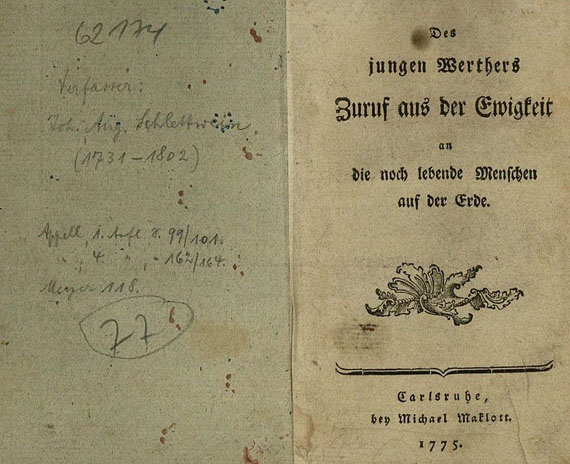 62174
Verfasser:
Joh. Aug. Schlettwein
(1731-1802)
Appell, 1. Aufl. S. 99/101.
" " 4 " " - 162/164.
Meyer 118.
77
Des
jungen Werthers
Zuruf aus der Ewigkeit
an
die noch lebende Menschen
auf der Erde.
Carlsruhe,
bey Michael Maklott.
1775.